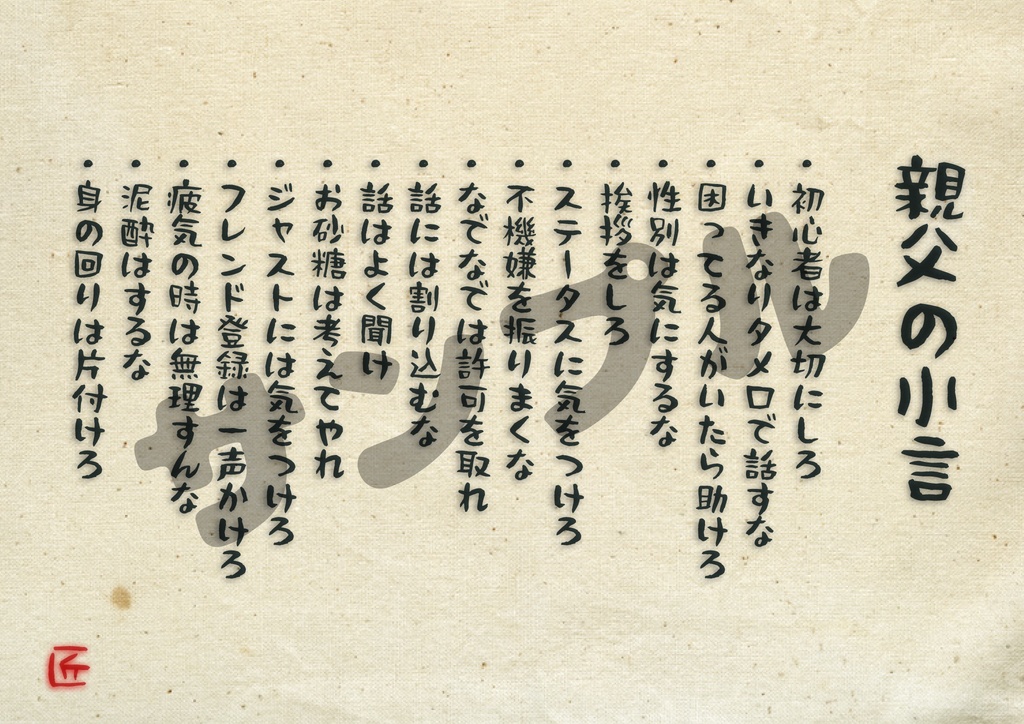 親父の小言
・初心者は大切にしろ
・いきなりタメ口で話すな
・困ってる人がいたら助けろ
・性別は気にするな
・挨拶をしろ
・ステータスに気をつけろ
・不機嫌を振りまくな
・なでなでは許可を取れ
・話には割り込むな
・話はよく聞け
・お砂糖は考えてやれ
・ジャストには気をつけろ
・フレンド登録は一声かけろ
・疲気の時は無理すんな
・泥酔はするな
・身の回りは片付けろ
サンプル
匠